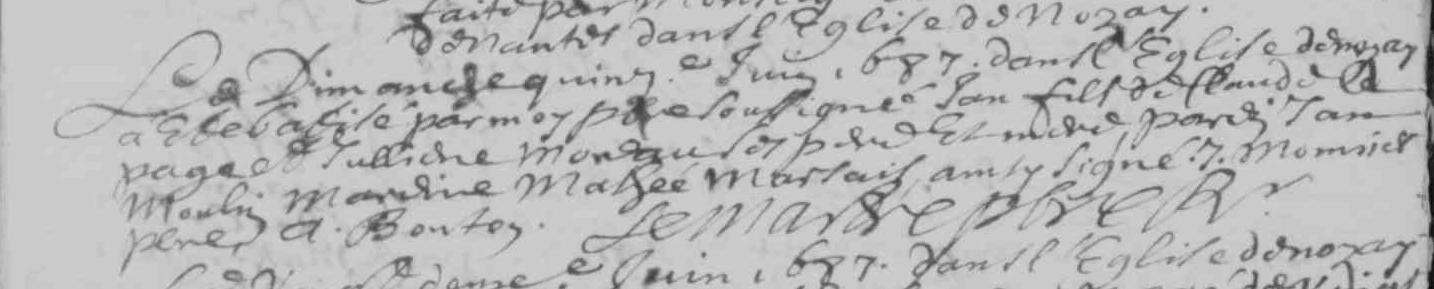 faite par
de Nantes dans l'Eglise de Nozay.
Le Dimanche quinz.e Juin 1687. dans l'Eglise de nozay
a Ete batisé par moy pbre soussigné Jan fils de Claude Le
page et Julliene Moreau ses pere Et mere, parein Jan
Moulin mareine Mathée Marsais, ainsy signé. J.
pere, A. Boutey. Lemarre pbre Rr.
Juin 1687. dans l'Eglise de nozay